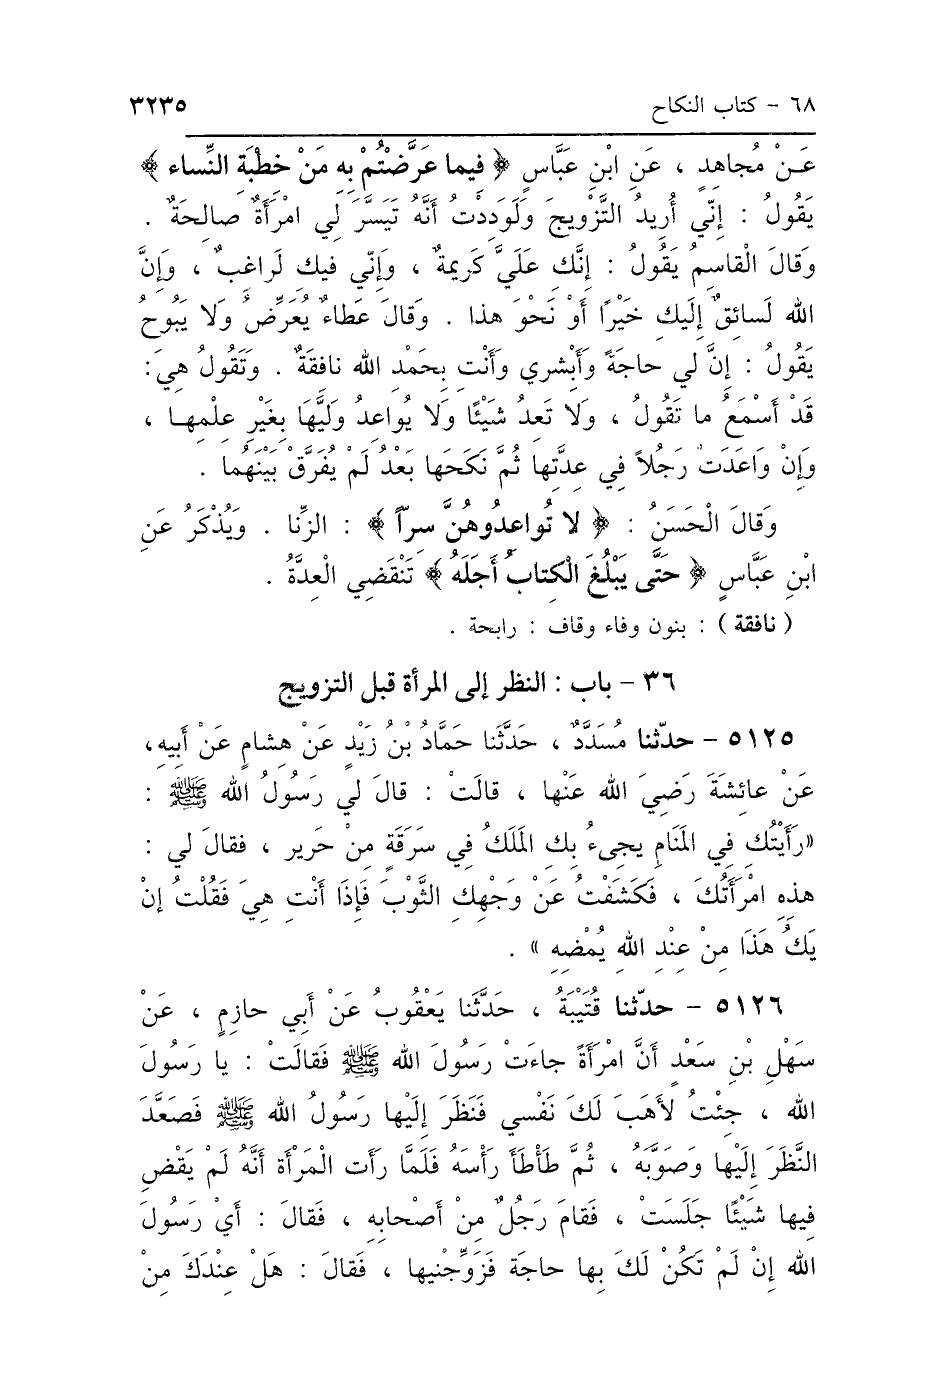 ٦٨ - كتاب النكاح ٣٢٣٥
عَـنْ مُجاهِدٍ ، عَنِ ابْنِ عَبَّاسٍ ﴿ فِيما عَرَّضْتُمْ بِهِ مَنْ خِطْبَةِ النِّساء ﴾
يَقُولُ : إِنّي أُرِيدُ التَّزْوِيجَ وَلَوَدِدْتُ أَنَّهُ تَيَسَّرَ لِي امْرَأَةٌ صالِحَةٌ .
وَقالَ الْقاسِمُ يَقُولُ : إِنَّكِ عَلَيَّ كَرِيمَةٌ ، وَإِنّي فِيكِ لَراغِبٌ ، وَإِنَّ
الله لَسائِقٌ إِلَيكِ خَيْرًا أَوْ نَحْوَ هذا . وَقَالَ عَطاءٌ يُعَرِّضُ وَلا يَبُوحُ
يَقُولُ : إِنَّ لي حاجَةً وَأَبْشِري وَأَنْتِ بِحَمْدِ الله نافِقَةٌ . وَتَقُولُ هِيَ:
قَدْ أَسْمَعُ ما تَقُولُ ، وَلا تَعِدُ شَيْئًا وَلا يُواعِدُ وَلِيُّهَا بِغَيْرِ عِلْمِهـا ،
وَإِنْ وَاعَدَتْ رَجُلاً فِي عِدَّتِها ثُمَّ نَكَحَها بَعْدُ لَمْ يُفَرَّقْ بَيْنَهُما .
وَقالَ الْحَسَنُ : ﴿ لا تُواعِدُوهُنَّ سِرّاً ﴾ : الزِّنا . وَيُذْكَرُ عَنِ
ابْنِ عَبَّاسٍ ﴿ حَتَّى يَبْلُغَ الْكِتابُ أَجَلَهُ ﴾ تَنْقَضِي الْعِدَّةُ .
( نافقة ) : بنون وفاء وقاف : رابحة .
٣٦ - باب : النظر إلى المرأة قبل التزويج
٥١٢٥ - حدّثنا مُسَدَّدٌ ، حَدَّثَنا حَمَّادُ بْنُ زَيْدٍ عَنْ هِشامٍ عَنْ أَبِيهِ،
عَنْ عائِشَةَ رَضِيَ الله عَنْها ، قالَتْ : قالَ لي رَسُولُ الله ﷺ :
«رَأَيْتُكِ فِي المَنَامِ يجِيءُ بِكِ المَلَكُ فِي سَرَقَةٍ مِنْ حَرِيرٍ ، فَقالَ لي :
هذِهِ امْرَأَتُكَ ، فَكَشَفْتُ عَنْ وَجْهِكِ الثَّوْبَ فَإِذَا أَنْتِ هِيَ فَقُلْتُ إِنْ
يَكُ هَذَا مِنْ عِنْدِ الله يُمْضِهِ » .
٥١٢٦ - حدّثنا قُتَيْبَةُ ، حَدَّثَنا يَعْقُوبُ عَنْ أَبي حازِمٍ ، عَنْ
سَهْلِ بْنِ سَعْدٍ أَنَّ امْرَأَةً جاءَتْ رَسُولَ الله ﷺ فَقالَتْ : يا رَسُولَ
الله ، جِئْتُ لأَهَبَ لَكَ نَفْسي فَنَظَرَ إِلَيْها رَسُولُ الله ﷺ فَصَعَّدَ
النَّظَرَ إِلَيْها وَصَوَّبَهُ ، ثُمَّ طَأْطَأَ رَأْسَهُ فَلَمَّا رَأَتِ الْمَرْأَةِ أَنَّهُ لَمْ يَقْضِ
فِيها شَيْئًا جَلَسَتْ ، فَقَامَ رَجُلٌ مِنْ أَصْحابِهِ ، فَقالَ : أَيْ رَسُولَ
الله إِنْ لَمْ تَكُنْ لَكَ بِها حاجَة فَزَوِّجْنِيها ، فَقالَ : هَلْ عِنْدَكَ مِنْ